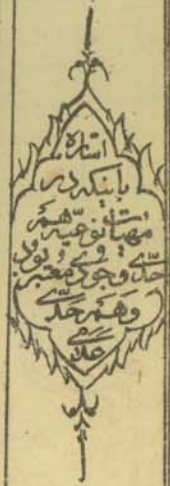 اشاره
باینکه در
مهیات نوعیه هم
حدی وجودی معتبر بود
و هم حدی
عدمی